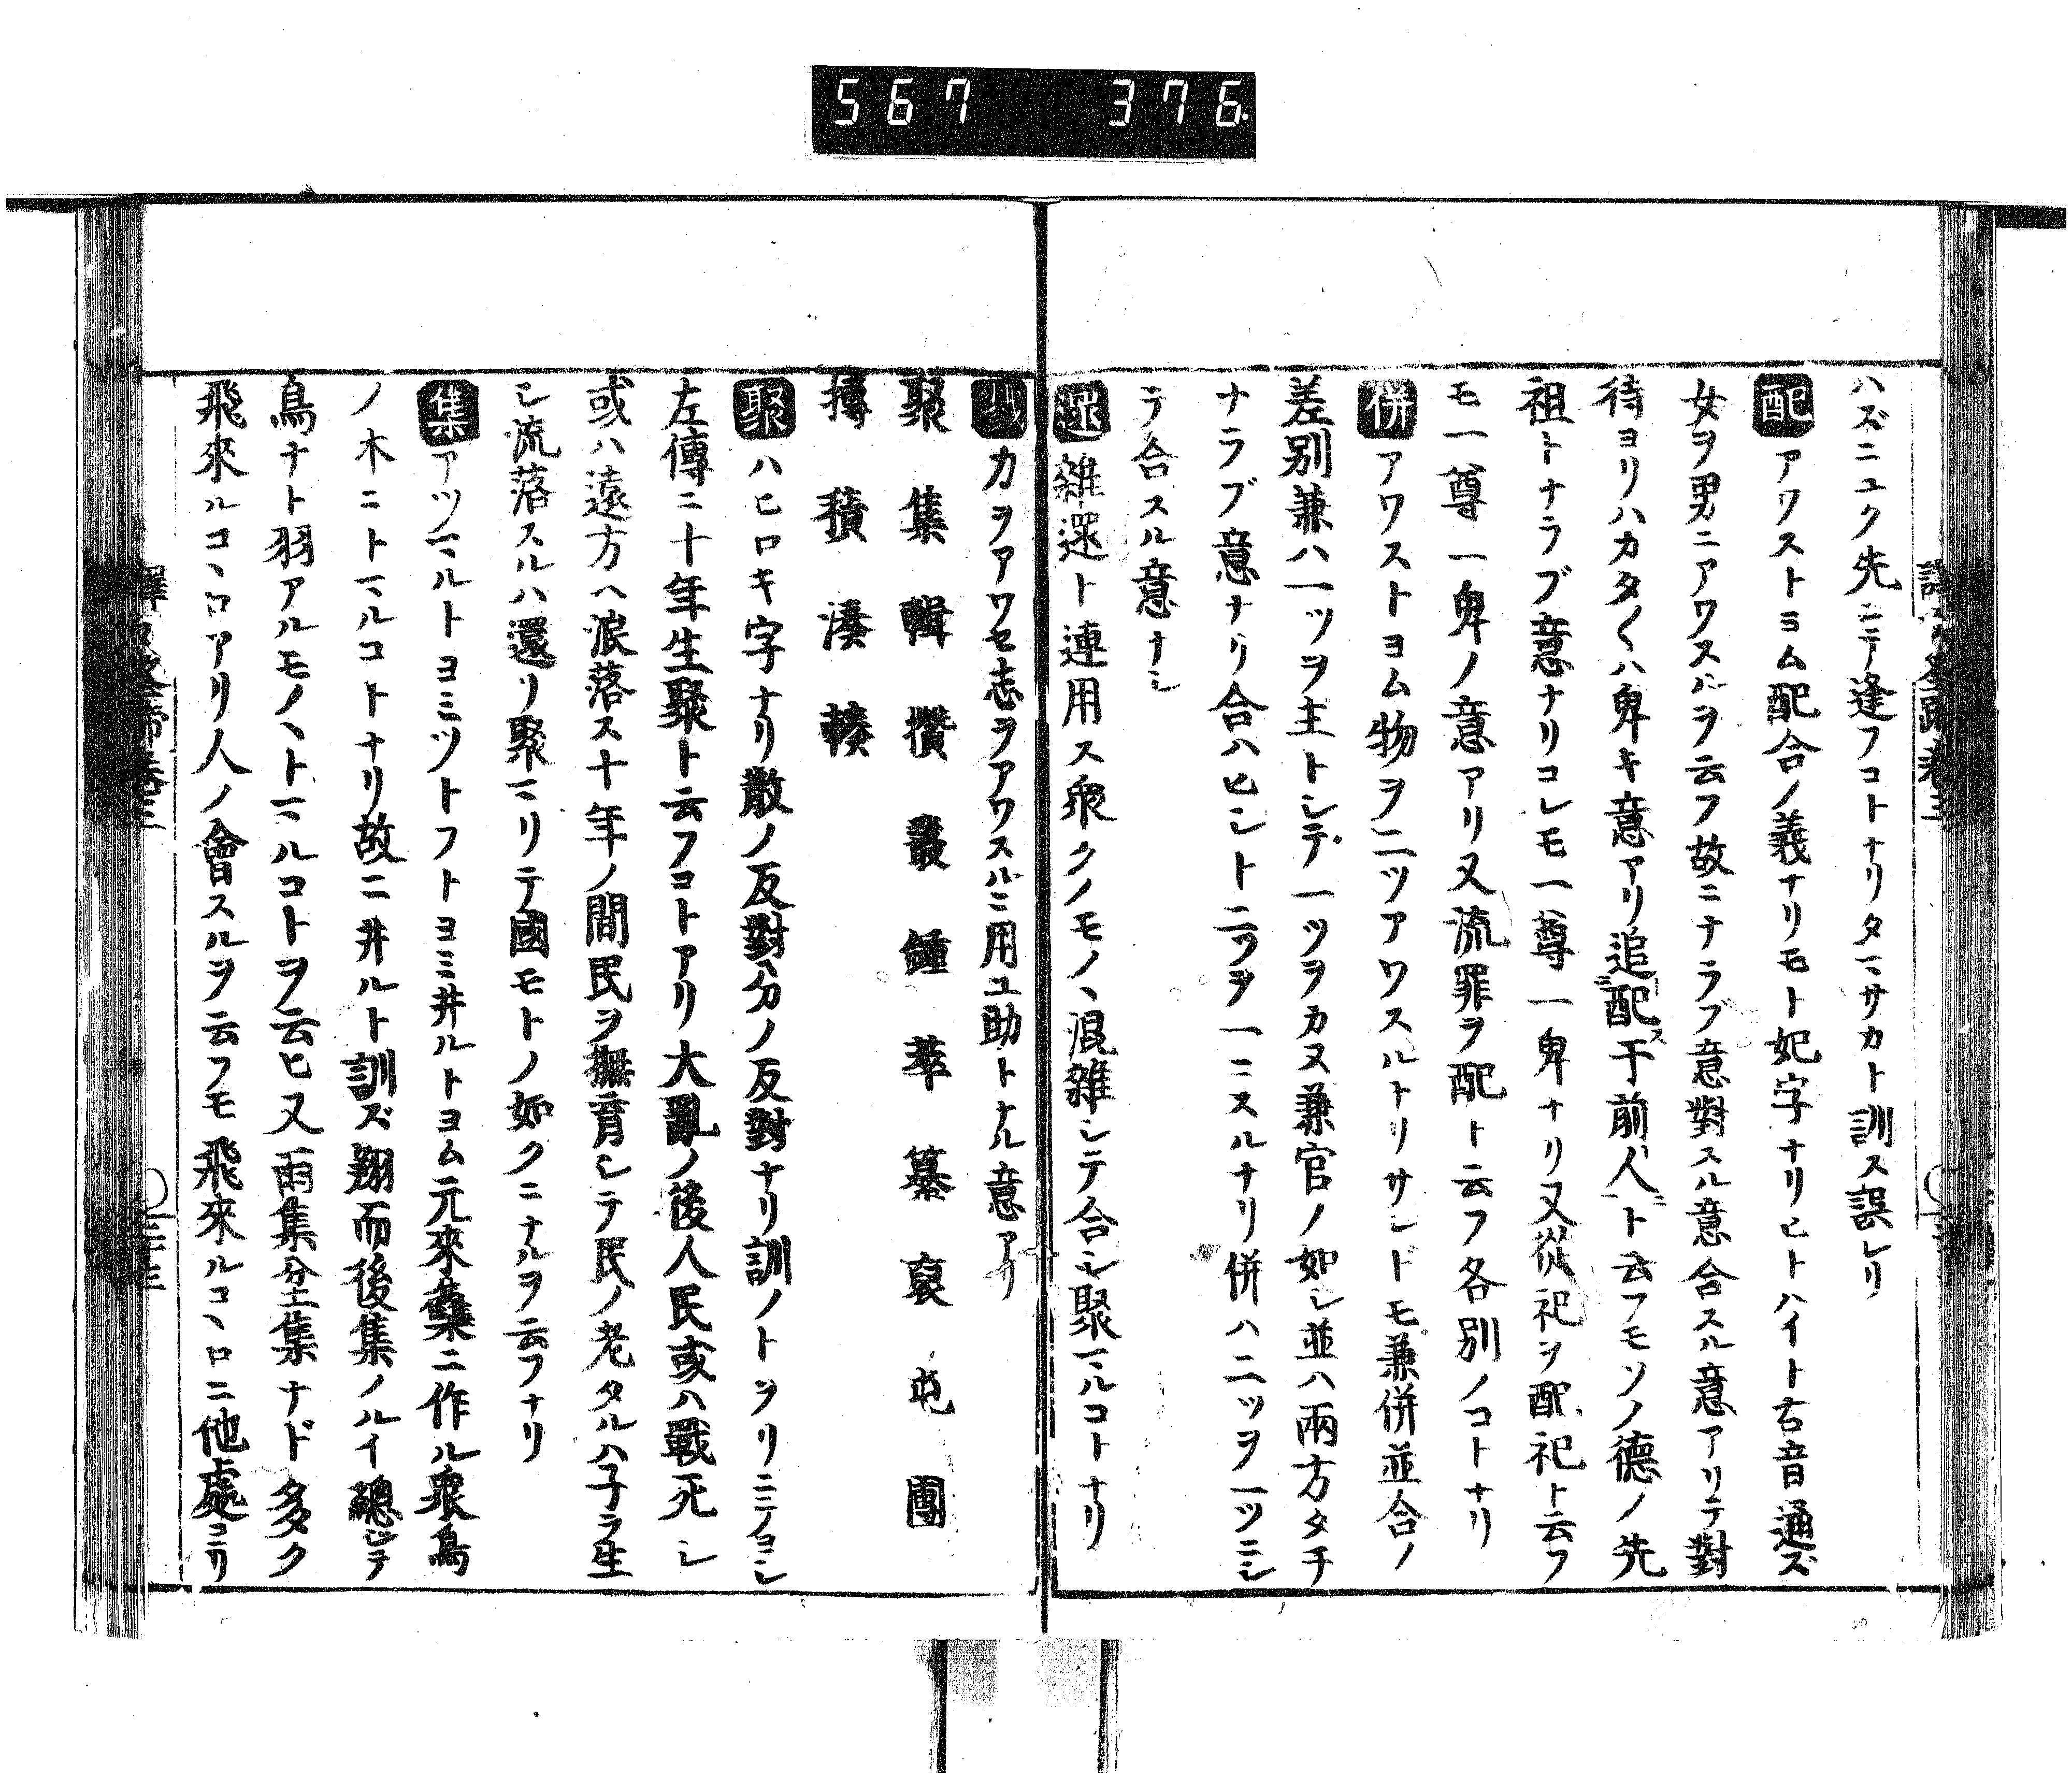 567 376
ハズニユク先ニテ逢フコトナリタマサカト訓ス誤レリ
配アワストヨム配合ノ義ナリモト妃字ナリヒトハイト古音通ズ
女ヲ男ニアワスルヲ云フ故ニナラフ意對スル意合スル意アリテ對
待ヨリハカタ〱ハ卑キ意アリ追配ス于前人ニト云フモソノ德ノ先
祖トナラブ意ナリコレモ一尊一卑ナリ又從祀ヲ配祀ト云フ
モ一尊一卑ノ意アリ又流罪ヲ配ト云フ各別ノコトナリ
併アワストヨム物ヲ二ツアワスルトリサレドモ兼併並合ノ
差別兼ハ一ツヲ主トシテ一ツヲカヌ兼官ノ如シ並ハ兩方タチ
ナラブ意ナリ合ハヒシト二ツヲ一ニスルナリ併ハ二ツヲ一ツニシ
テ合スル意ナシ
遝雜遝ト連用ス衆クノモノヽ混雜シテ合シ聚マルコトナリ
戮力ヲアワセ志ヲアワスルニ用ユ助トナル意アリ
聚集輯攢叢鍾萃纂裒屯團
摶積湊輳
聚ハヒロキ字ナリ散ノ反對分ノ反對ナリ訓ノトヲリニテヨシ
左傳ニ十年生聚ト云フコトアリ大亂ノ後人民或ハ戰死シ
或ハ遠方ヘ流落ス十年ノ間民ヲ撫育シテ民ノ老タルハ子ヲ生
シ流落スルハ還リ聚マリテ國モトノ如クニナルヲ云フナリ
集アツマルトヨミツトフトヨミ井ルトヨム元來雧ニ作ル衆鳥
ノ木ニトマルコトナリ故ニ井ルト訓ズ翔而後集ノルイ總ジテ
鳥ナト羽アルモノヽトマルコトヲ云ヒ又雨集坌集ナド多ク
飛來ルコヽロアリ人ノ會スルヲ云フモ飛來ルコヽロニ他處ヨリ